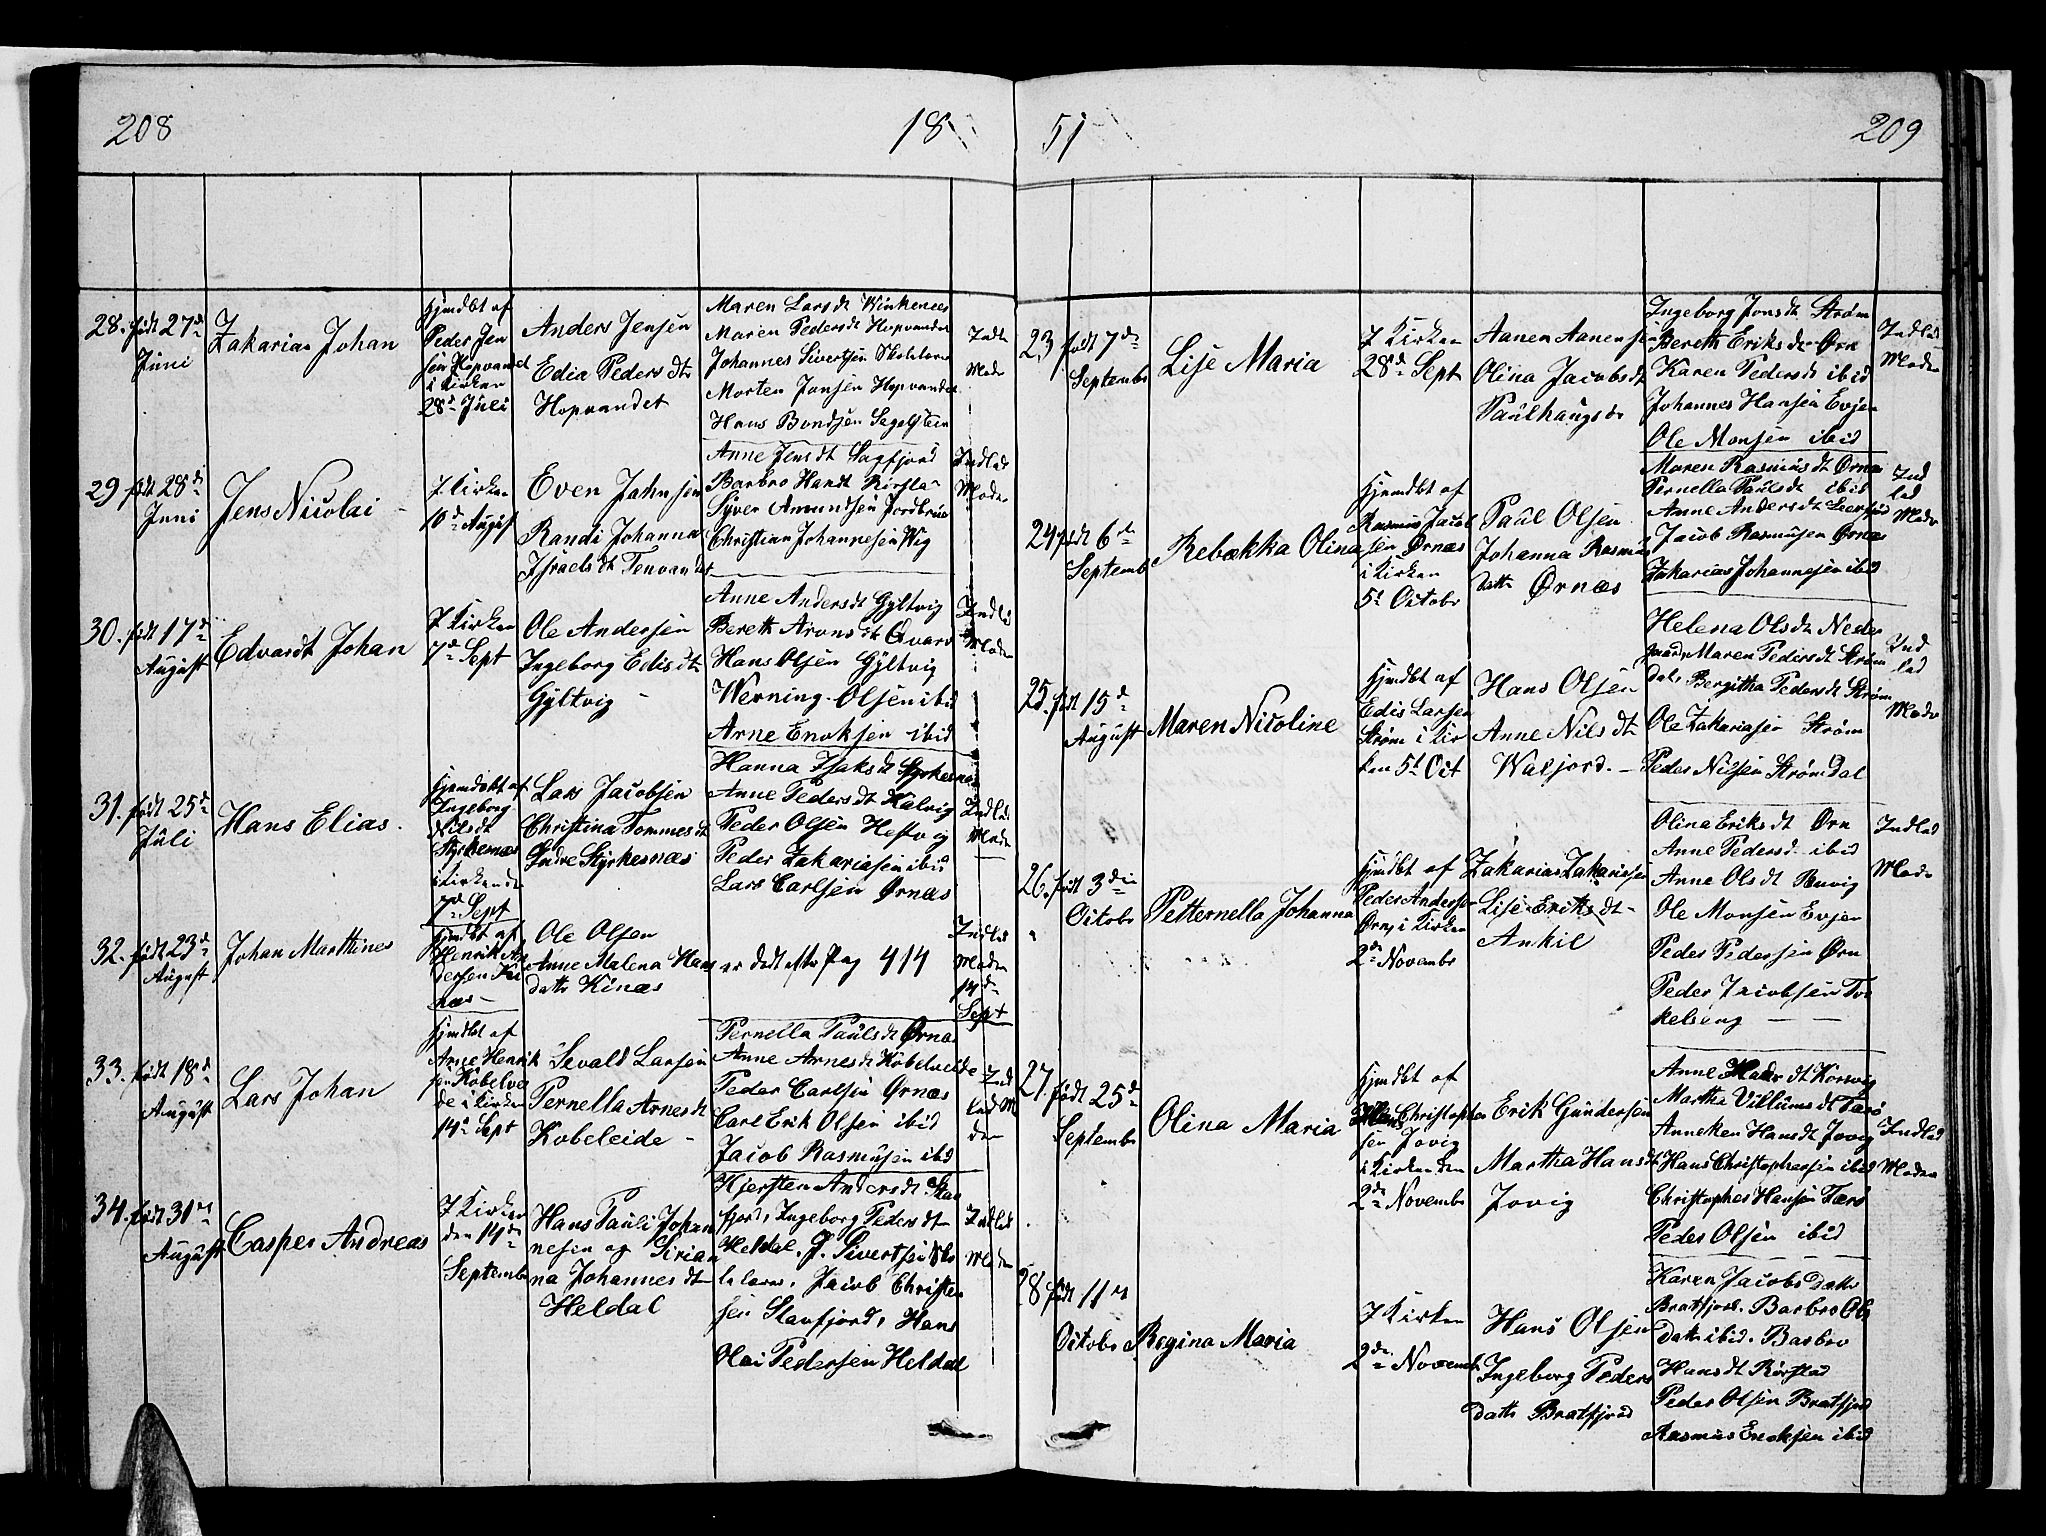 208
18
28. født 27de
Juni
Zakarias Johan
hjmdbt af
Peder Jen
sen Hopvandet
i Kirken
28de Juli
Anders Jensen
Edia Pedersdtr
Hopvandet
Maren Larsdt Winkenes
Maren Pedersdt Hopvandet
Johannes Sivertsen Skolelærer
Morten Jonsen Hopvandet
Hans Bendsen Segelsteen
29. født 28de
Juni
Jens Nicolai
I Kirken
10de August
Even Jahnsen
Randi Johanna
Israelsdt Tenvandet
Anne Jensdt Sagfjord
Barbro Hansdt Rørstad
Syver Amundsen Jordbrue
Christian Johannesen Wig
Indlad
Moder
30. født 17de
August
Edvardt Johan
I Kirken
7de Sept
Ole Andersen
Ingeborg Edisdt
Gyltvig
Anne Andersdt Gyltvig
Bereth Aronsdt Qvarv
Hans Olsen Gyltvig
Werning Olsen ibid
Arne Enoksen ibid
Indlad
Moder
31. født 25de
Juli
Hans Elias
hjemdøbt af
Ingeborg
Nilsdt
Styrkesnæs
i Kirken de
7de Sept
Lars Jacobsen
Christina Tommesdt
Indre Styrkesnæs
Hanna Isaksdt Styrkesnæs
Anne Pedersdt Kalvig
Peder Olsen Hestvig
Peder Zakariasen ibid
Lars Carlsen Ørnæs
Indlad
Moder
32. født 23de
August
Johan Marthines
hjmdbt af
Henrik An
dersen Ki
næs
Ole Olsen
Anne Malena Hans
datter Kinæs
er død efter Pag 414
Indlad
Moder
14de
Sept
33. født 18de
August
Lars Johan
hjmdbt af
Arne Henrik
sen Kobelvei
de i Kirken
14de Sept
Sevald Larsen
Pernella Arnesdt
Kobeleide
Pernella Paulsdt Ørnæs
Anne Arnesdt Kobelveide
Peder Carlsen Ørnæs
Carl Erik Olsen ibid
Jacob Rasmusen ibid
Ind
lad Mo
der
34. født 31te
August
Casper Andreas
I Kirken
den 14de
September
Hans Pauli Johan
nesen og Sirian
na Johannesdt
Heldal
Kjersten Andersdt Slau
fjord, Ingeborg Pedersdt
Heldal. J. Sivertsen Sko
lelærer, Jacob Christen
sen Slaufjord, Hans
Olai Pedersen Heldal
Indlad
Moder
51
209
23 født 7de
Septembr
Lise Maria
I Kirken
28de Sept
Aanen Aanensen
Olina Jacobsdt
Paulhaugen
Ingeborg Jonsdt Strøm
Bereth Eriksdtr Ørn
Karen Pedersdt ibid
Johannes Hansen Evjen
Ole Monsen ibid
Indlad
Moder
24 født 6te
Septembr
Rebækka Olina
hjemdbt af
Rasmus Jacob
sen Ørnæs
i Kirken
5te Octobr
Paul Olsen
Johanna Rasmus
datter Ørnæs
Maren Rasmusdt Ørnæs
Pernella Paulsdt ibid
Anne Andersdt Leerfjord
Jacob Rasmusen Ørnæs
Zakarias Johannesen ibid
Ind
lad
Moder
25. født 15de
August
Maren Nicoline
hjmdbt af
Edis Larsen
Strøm i Kir
ken 5te Oct
Hans Olsen
Anne Nilsdt
Waljord.
Helena Olsdtr Neder
gaard, Maren Pedersdt Strøm
dal Bergitha Pedersdt Strøm
Ole Zakariasen Strøm
Peder Nilsen Strømdal
Ind
lad
Moder
26. født 3die
Octobr
Petternella Johanna
hjmdbt af
Peder Anderse
Ørn, i Kirken
2de Novembr
Zakarias Zakariasen
Lise Eriksdt
Ankil
Olina Eriksdt Ørn
Anne Pedersd ibid
Anne Olsdt
Ole Monsen Evjen
Peder Pedersen Ørn
Peder Jacobsen Tor
kelseng
Indlad
Moder
27 født 25de
Septembr
Olina Maria
hjmdbt af
Hans Christopher
sen Jovig
i Kirken den
2de Novembr
Erik Gundersen
Martha Hansdt
Jovig
Anne
Martha Villumsdt Færø
Anneken Hansdt Jovig
Hans Christophersen ibid
Christopher Hansen Færø
Peder Olsen ibid
Indlad
Moder
28 født 11te
Octobr
Regina Maria
I Kirken
2de Novemb
Hans Olsen
Ingeborg Peders
datter Bratfjord
Karen Jacobsdatter
Bratfjord. Barbro Ols
datter ibid. Barbro
Hansdt Rørstad
Peder Olsen Bratfjord
Rasmus Enoksen ibid